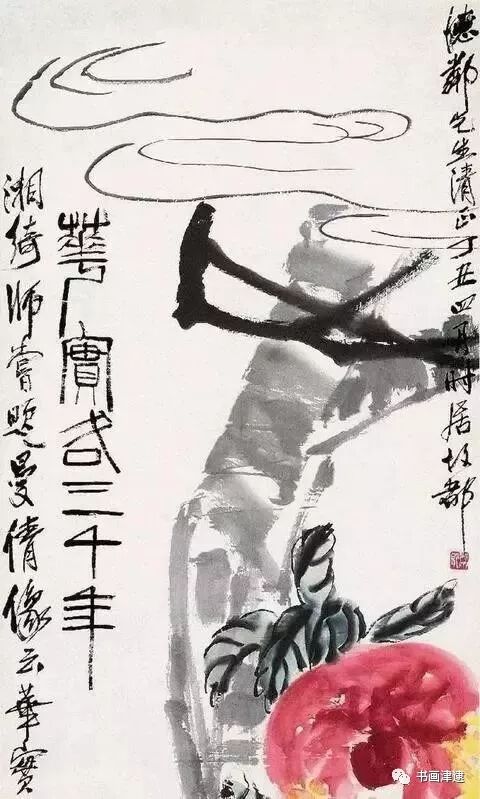 德鄰先生清正丁丑四月時居故都
華實各三千年
湘綺師嘗題曼倩像云華實
书画津逮